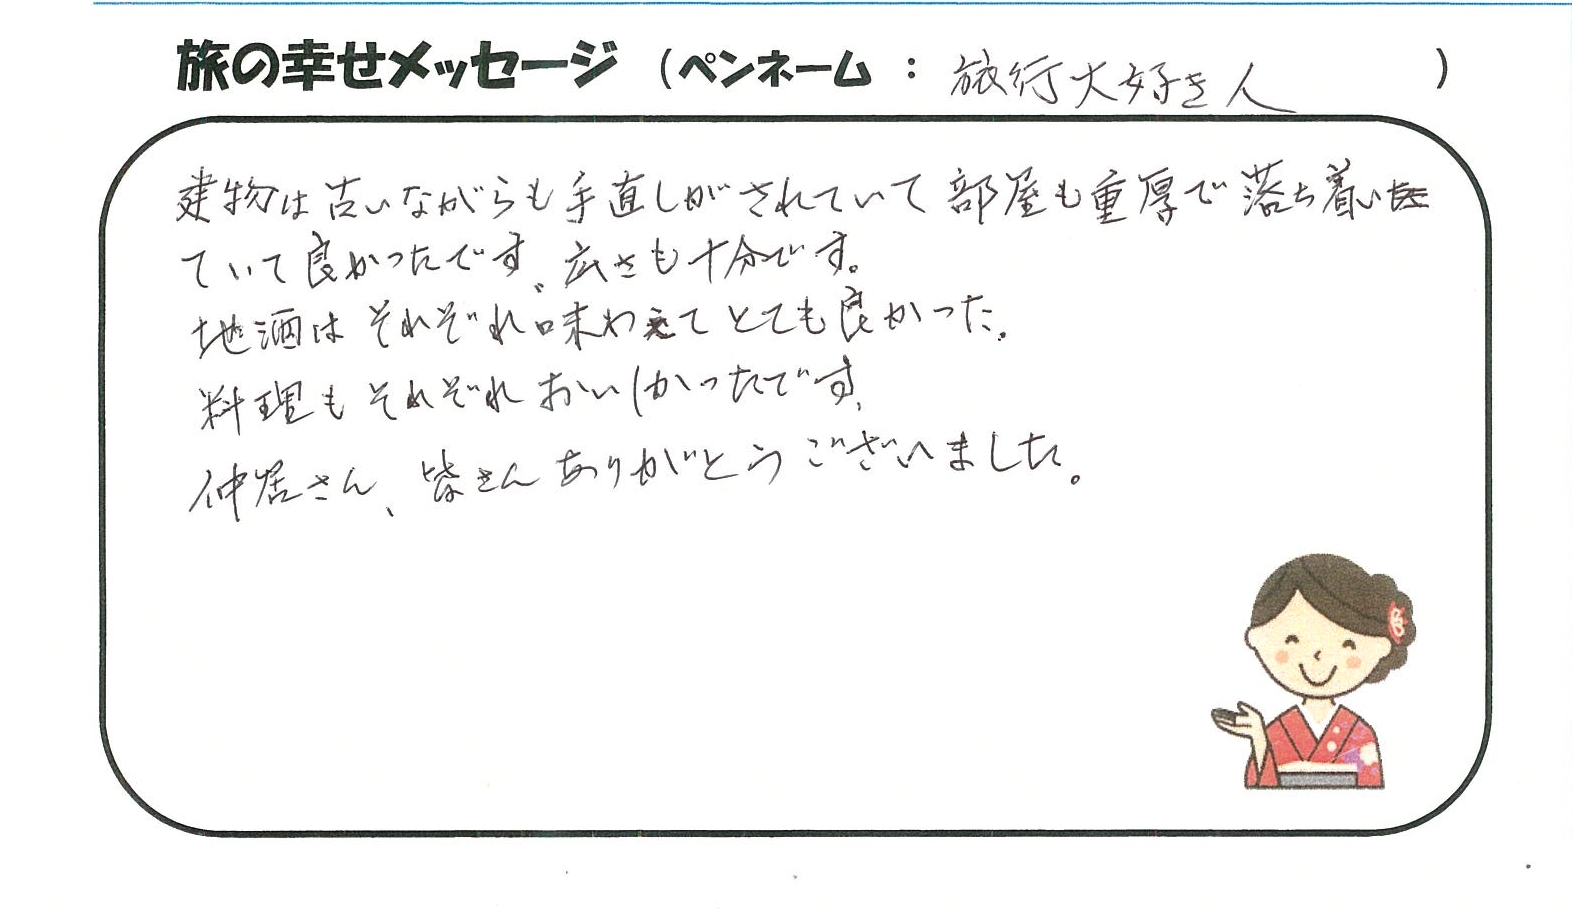 旅の幸せメッセージ (ペンネーム : 旅行大好き人 )
建物は古いながらも手直しがされていて部屋も重厚で落ち着い
ていて良かったです、広さも十分です。
地酒はそれぞれ味わえてとても良かった。
料理もそれぞれおいしかったです。
仲居さん、皆さんありがとうございました。